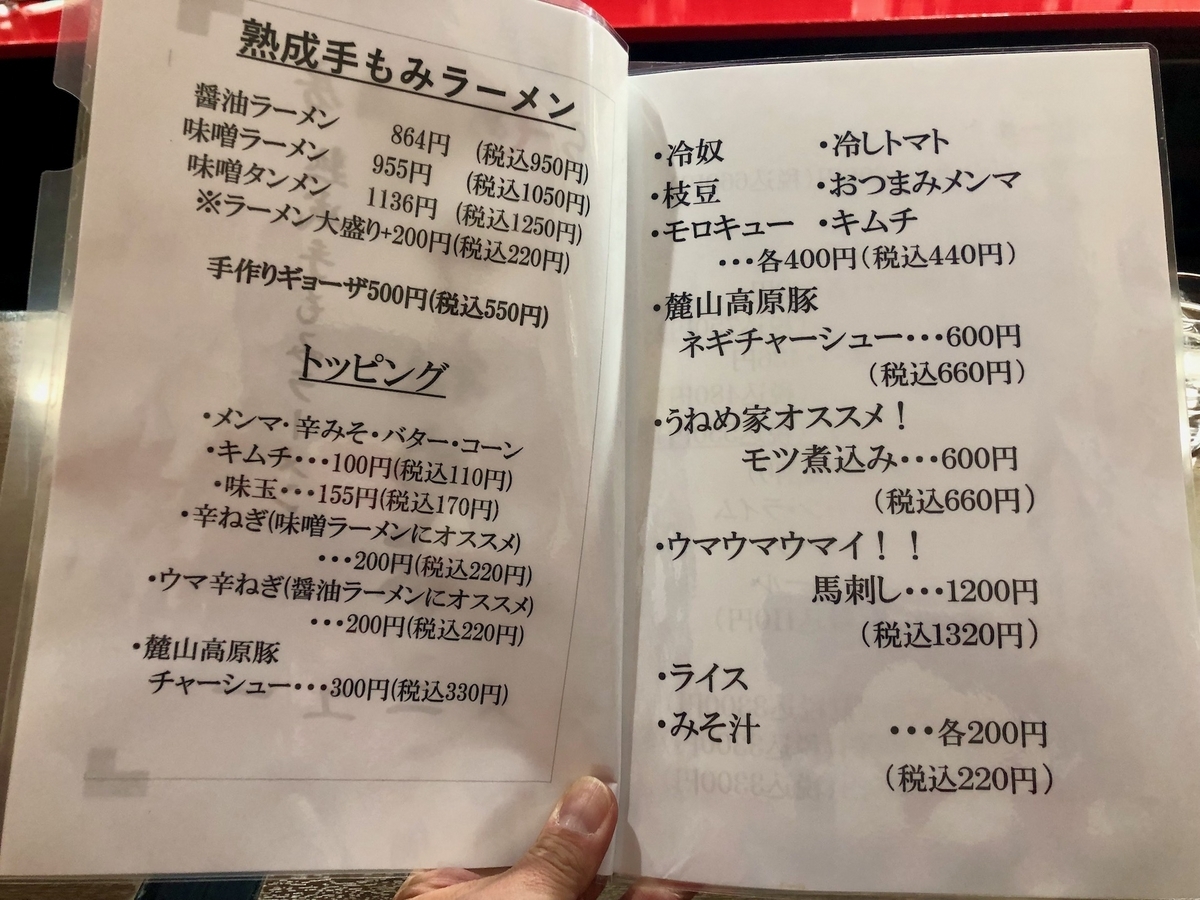 熟成手もみラーメン
醤油ラーメン 864円 (税込950円)
味噌ラーメン 955円 (税込1050円)
味噌タンメン 1136円 (税込1250円)
※ラーメン大盛り+200円(税込220円)
手作りギョーザ500円(税込550円)
トッピング
・メンマ・辛みそ・バター・コーン
・キムチ・・・100円(税込110円)
・味玉・・・155円(税込170円)
・辛ねぎ(味噌ラーメンにオススメ)
・・・200円(税込220円)
・ウマ辛ねぎ(醤油ラーメンにオススメ)
・・・200円(税込220円)
・麓山高原豚
チャーシュー・・・300円(税込330円)
・冷奴 ・冷しトマト
・枝豆 ・おつまみメンマ
・モロキュー ・キムチ
・・・各400円(税込440円)
・麓山高原豚
ネギチャーシュー・・・600円
(税込660円)
・うねめ家オススメ！
モツ煮込み・・・600円
(税込660円)
・ウマウマウマイ！！
馬刺し・・・1200円
(税込1320円)
・ライス
・みそ汁 ・・・各200円
(税込220円)